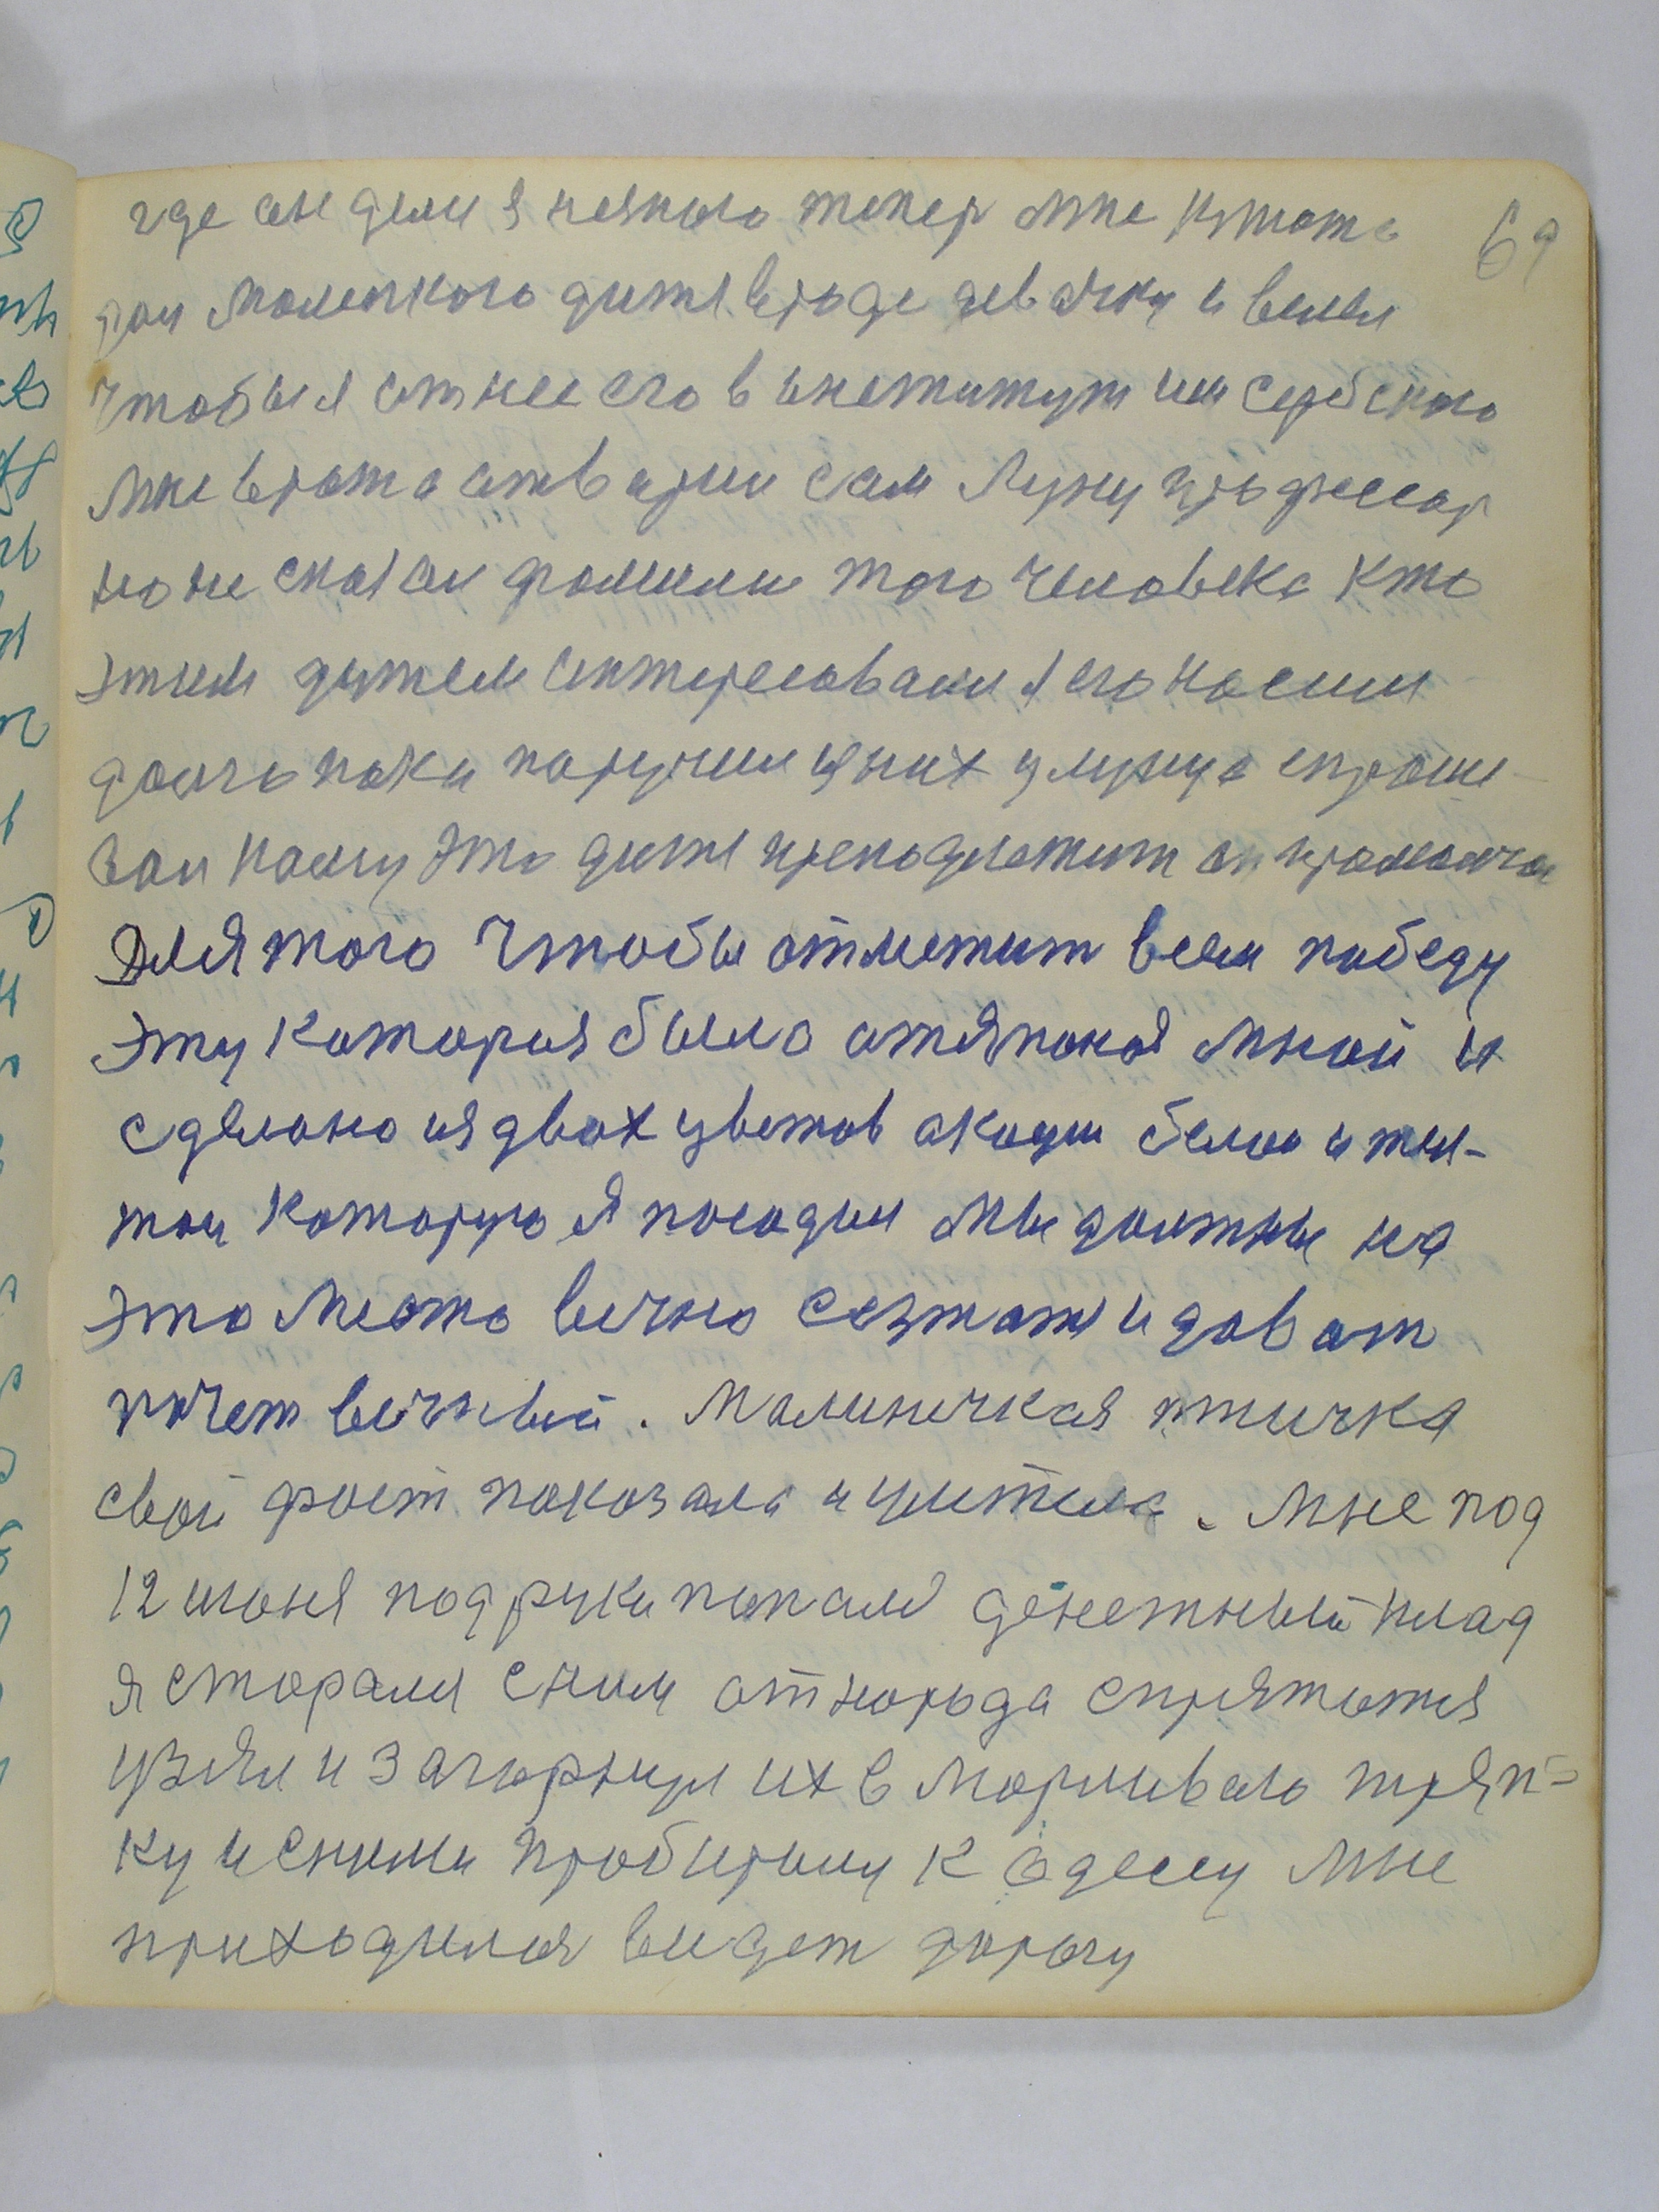 69
где он дели я некого тепер мне кто то
дал малечкого дитя вроде девочку и велел
чтобы я отнес его в институт им Сербского
мне врата отварил сам Лунц профессор
но не сказал фамили того человека кто
этим дитем интересовали я его носил
долго пока поручил у них у лунца спраши-
вал кому это дитя преподлежит он промолчал
Для того чтобы отметит всем победу
эту которая было отякоя мной и
сделано ия двох цветов акации белои и жел-
тои которую я посадил мы должны на
это место вечно сезжатя и дават
почет вечный. Малинечкая птичка
свой рост показала и улетела. Мне под
12 июня под руки попали денежный клад
я старали с ним от народа спрятатся
узяли и загорнул их в марливаю тряп-
ку и с ними пробираю к Одессу мне
приходился видет дорогу